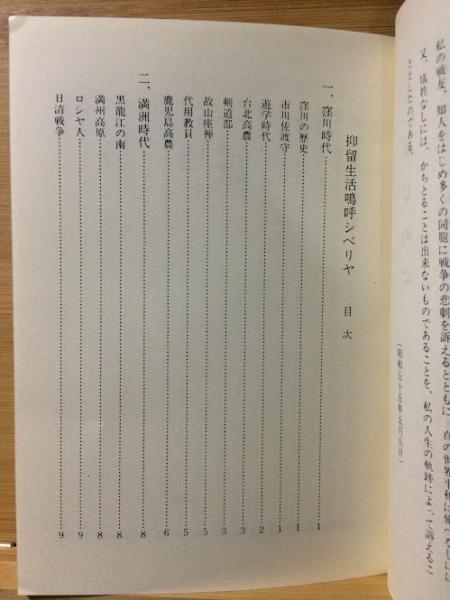 私の戦友、知人をはじめ多くの同胞に戦争の悲劇を訴えるとともに
又、犠牲なしには、かちとることは出来ないものであることを、私の人生の軌跡によって訴えるこ
ととしたのである。
(昭和五十五年五月五日)
抑留生活嗚呼シベリヤ 目次
一、窪川時代 1
窪川の歴史 1
市川佐渡守 1
遊学時代 2
台北高農 3
剣道部 3
故山座禅 5
代用教員 5
鹿児島高農 6
二、満洲時代 8
黒龍江の南 8
満州高原 8
ロシヤ人 9
日清戦争 9